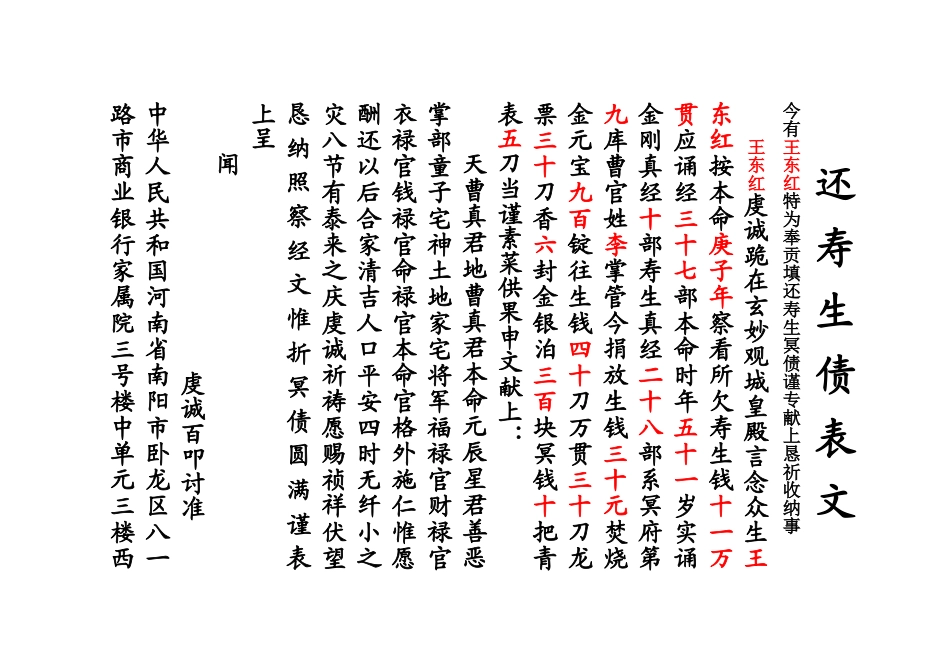 还寿生债表文
今有王东红特为奉贡填还寿生冥债谨专献上恳祈收纳事
王东红虔诚跪在玄妙观城皇殿言念众生王
东红按本命庚子年察看所欠寿生钱十一万
贯应诵经三十七部本命时年五十一岁实诵
金刚真经十部寿生真经二十八部系冥府第
九库曹官姓李掌管今捐放生钱三十元焚烧
金元宝九百锭往生钱四十刀万贯三十刀龙
票三十刀香六封金银泊三百块冥钱十把青
表五刀当谨素菜供果申文献上：
天曹真君地曹真君本命元辰星君善恶
掌部童子宅神土地家宅将军福禄官财禄官
衣禄官钱禄官命禄官本命官格外施仁惟愿
酬还以后合家清吉人口平安四时无纤小之
灾八节有泰来之庆虔诚祈祷愿赐祯祥伏望
恳纳照察经文惟折冥债圆满谨表
上呈
闻
虔诚百叩讨准
中华人民共和国河南省南阳市卧龙区八一
路市商业银行家属院三号楼中单元三楼西